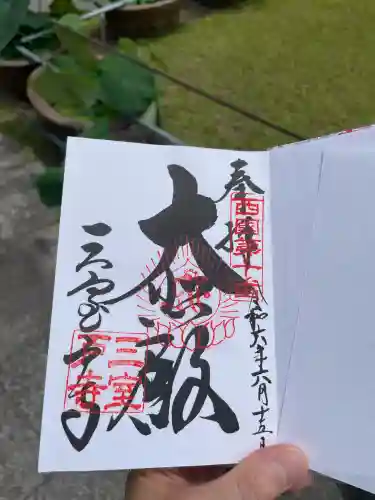 奉拝
西国第十番
令和六年六月十五日
大悲殿
三室戸寺
三室戸寺